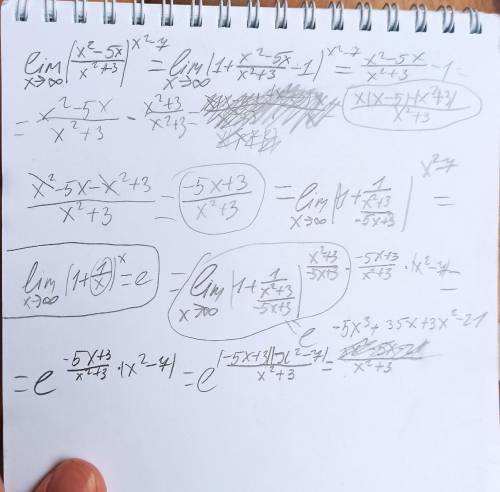 lim x→∞ (x²-5x / x²+3)^(x²-7) = lim x→∞ (1 + x²-5x / x²+3 - 1)^(x²-7) = x²-5x / x²+3 - 1 =
= x²-5x / x²+3 - x²+3 / x²+3 = x(x-5)-(x²+3) / x²+3
x²-5x-x²+3 / x²+3 = -5x+3 / x²+3 = lim x→∞ (1 + 1 / (x²+3 / -5x+3))^(x²-7) =
lim x→∞ (1 + 1/x)^x = e = lim x→∞ (1 + 1 / (x²+3 / -5x+3))^(x²+3 / -5x+3 · -5x+3 / x²+3 · (x²-7)) =
= e^(-5x+3 / x²+3 · (x²-7)) = e^((-5x+3)(x²-7) / x²+3) = e^(-5x³+35x+3x²-21 / x²+3)